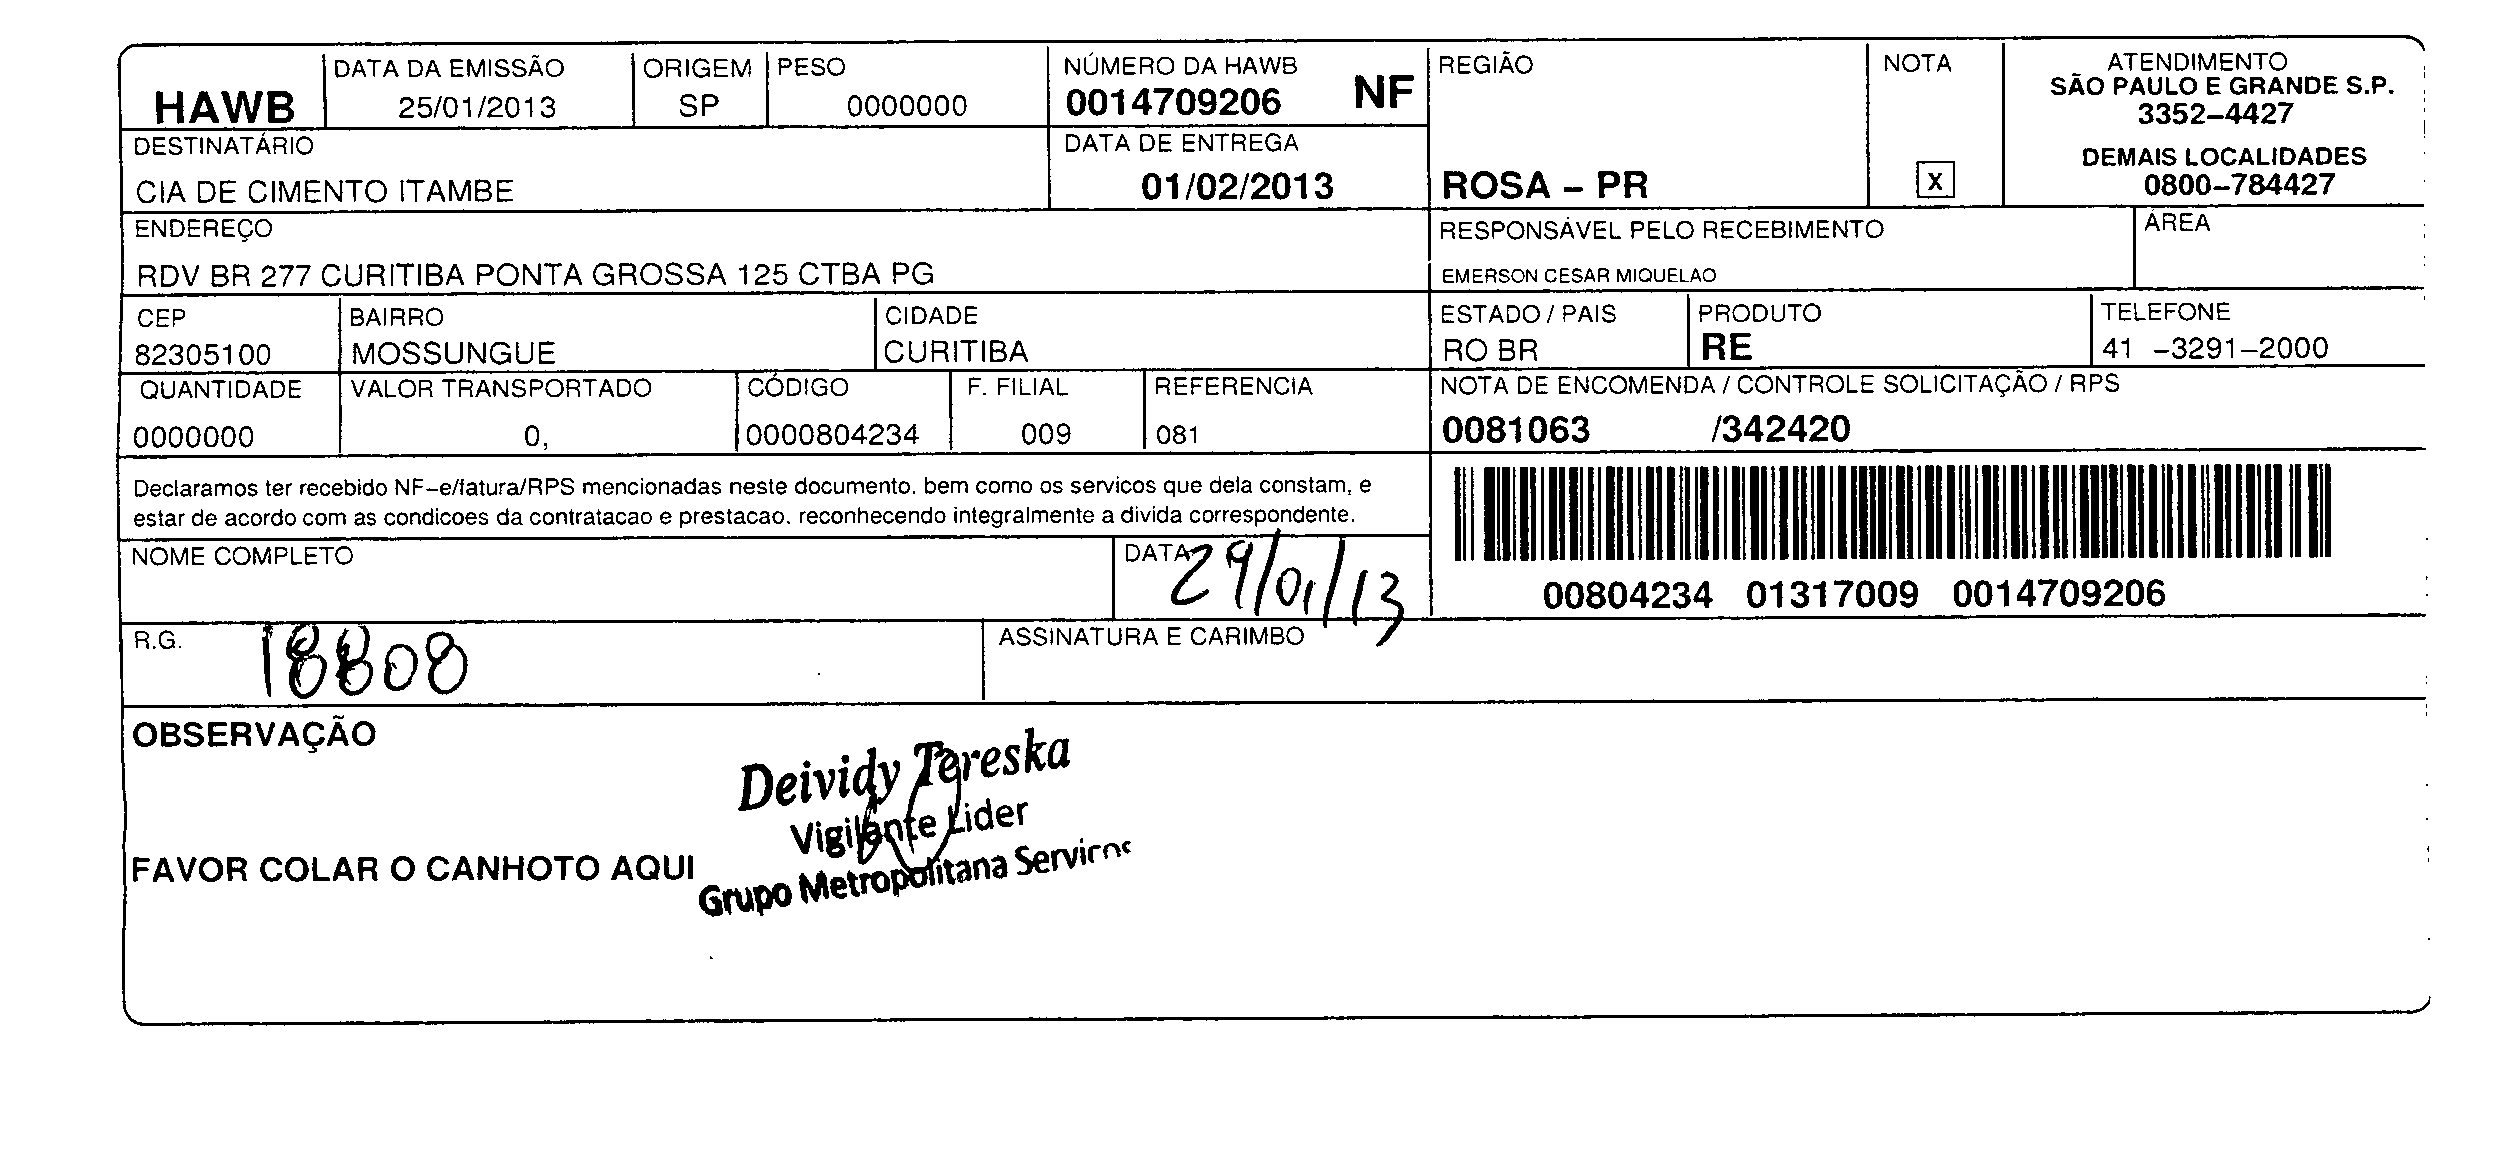 HAWB
DATA DA EMISSÃO
25/01/2013
ORIGEM
SP
PESO
0000000
NÚMERO DA HAWB
0014709206 NF
REGIÃO
ROSA – PR
NOTA
X
ATENDIMENTO
SÃO PAULO E GRANDE S.P.
3352–4427
DEMAIS LOCALIDADES
0800–784427
DESTINATÁRIO
CIA DE CIMENTO ITAMBE
DATA DE ENTREGA
01/02/2013
ENDEREÇO
RDV BR 277 CURITIBA PONTA GROSSA 125 CTBA PG
RESPONSÁVEL PELO RECEBIMENTO
EMERSON CESAR MIQUELAO
ÁREA
CEP
82305100
BAIRRO
MOSSUNGUE
CIDADE
CURITIBA
ESTADO / PAIS
RO BR
PRODUTO
RE
TELEFONE
41 –3291–2000
QUANTIDADE
0000000
VALOR TRANSPORTADO
0,
CÓDIGO
0000804234
F. FILIAL
009
REFERENCIA
081
NOTA DE ENCOMENDA / CONTROLE SOLICITAÇÃO / RPS
0081063 /342420
Declaramos ter recebido NF–e/fatura/RPS mencionadas neste documento. bem como os servicos que dela constam, e
estar de acordo com as condicoes da contratacao e prestacao. reconhecendo integralmente a divida correspondente.
00804234 01317009 0014709206
NOME COMPLETO
DATA
29/01/13
R.G.
18808
ASSINATURA E CARIMBO
OBSERVAÇÃO
Deividy Tereska
Vigilante Lider
Grupo Metropolitana Servicos
FAVOR COLAR O CANHOTO AQUI